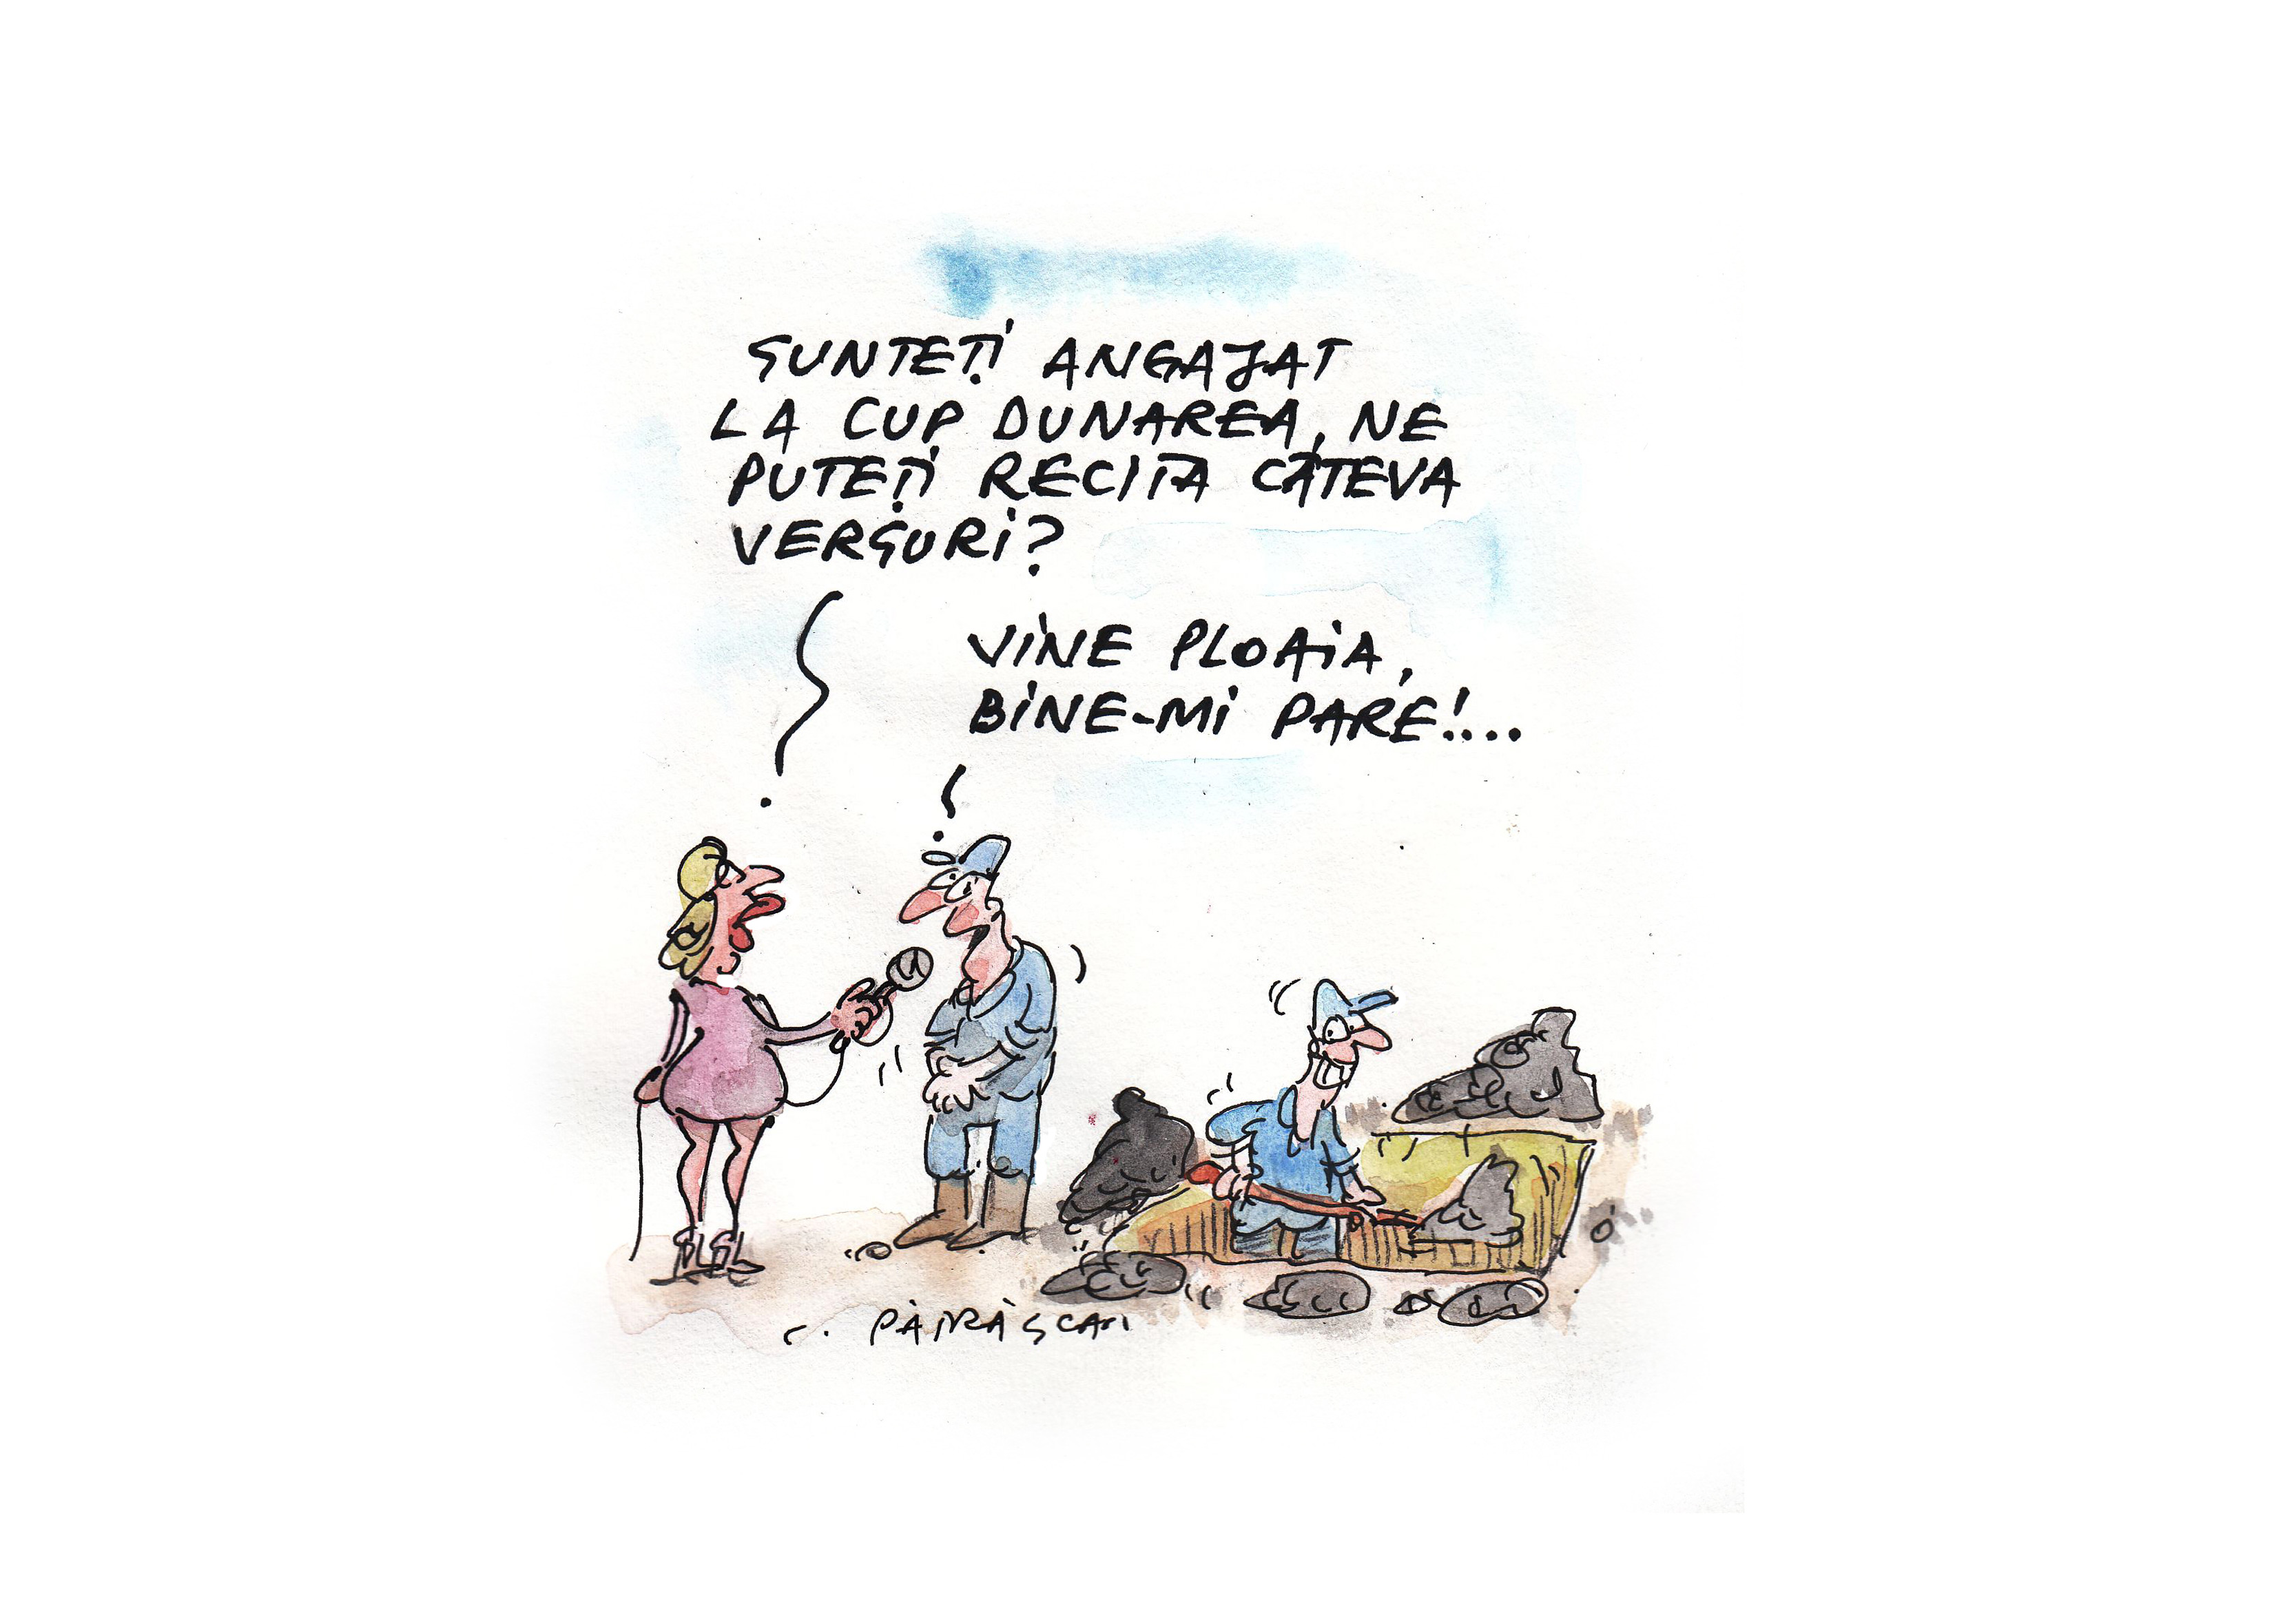 SUNTEȚI ANGAJAT
LA CUP DUNAREA, NE
PUTEȚI RECITA CÂTEVA
VERSURI?
VINE PLOAIA,
BINE-MI PARE!...
C. PĂTRĂȘCAN